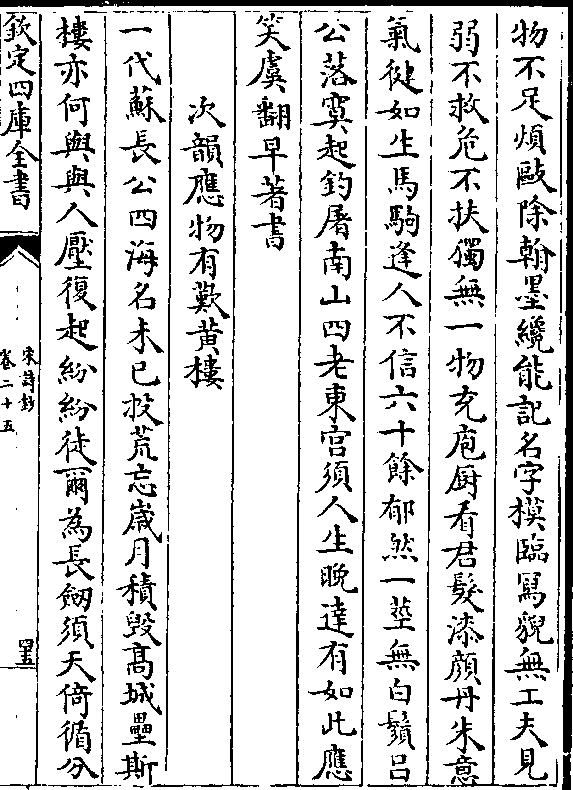 物不足煩敺除翰墨纔能記名字模臨寫貌無工夫見
弱不救危不扶獨無一物充庖厨看君髮漆顔丹朱意
氣健如生馬駒逢人不信六十餘郁然一莖無白鬚吕
公落寞起釣屠南山四老東宫須人生晚達有如此應
笑虞翻早著書
次韻應物有歎黄樓
一代蘇長公四海名未已投荒忘嵗月積毁髙城壘斯
樓亦何與與人壓復起紛紛徒爾為長劒須天倚循分
欽定四庫全書
宋詩鈔
卷二十五